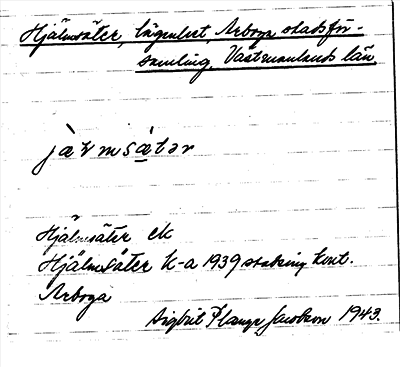 Hjälmsäter, lägenhet, Arboga stadsför-
samling, Västmanlands län.
jàɽmsä̀tər
Hjälmsäter ek
Hjälmsäter k-a 1939 stakning kont.
Arboga
Sigbrit Plange Jacobson 1943.